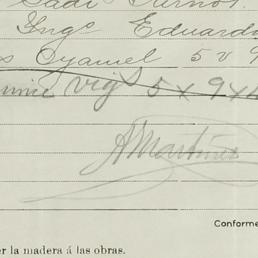 Sadi Carnot.
Ynge Eduardo
Oyamel 5 v 9
vigs 5 x 9 x
A Martinez
Conforme
er la madera á las obras.